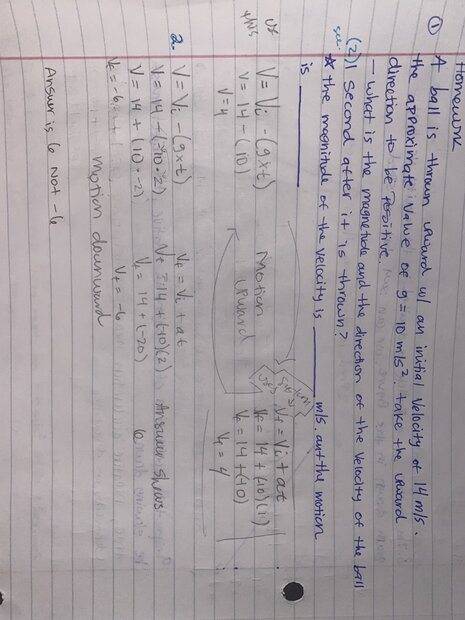 Homework
① A ball is thrown upward w/ an initial velocity of 14 m/s.
the approximate value of g = 10 m/s². take the upward
direction to be positive.
- What is the magnitude and the direction of the velocity of the ball
(2) 1 second after it is thrown?
sec.
* the magnitude of the velocity is ______ m/s. and the motion
is ______
V = Vi - (g x t)
V = 14 - (10)
V = 4
Motion
upward
Vf = Vi + at
Vf = 14 + (-10)(1)
Vf = 14 + (-10)
Vf = 4
2. V = Vi - (g x t)
V = 14 - (-10·2)
V = 14 + (10·-2)
Vf = -6
Vf = Vi + at
Vf = 14 + (-10)(2)
Vf = 14 + (-20)
Vf = -6
Answer shows
6
motion downward
Answer is 6 Not -6